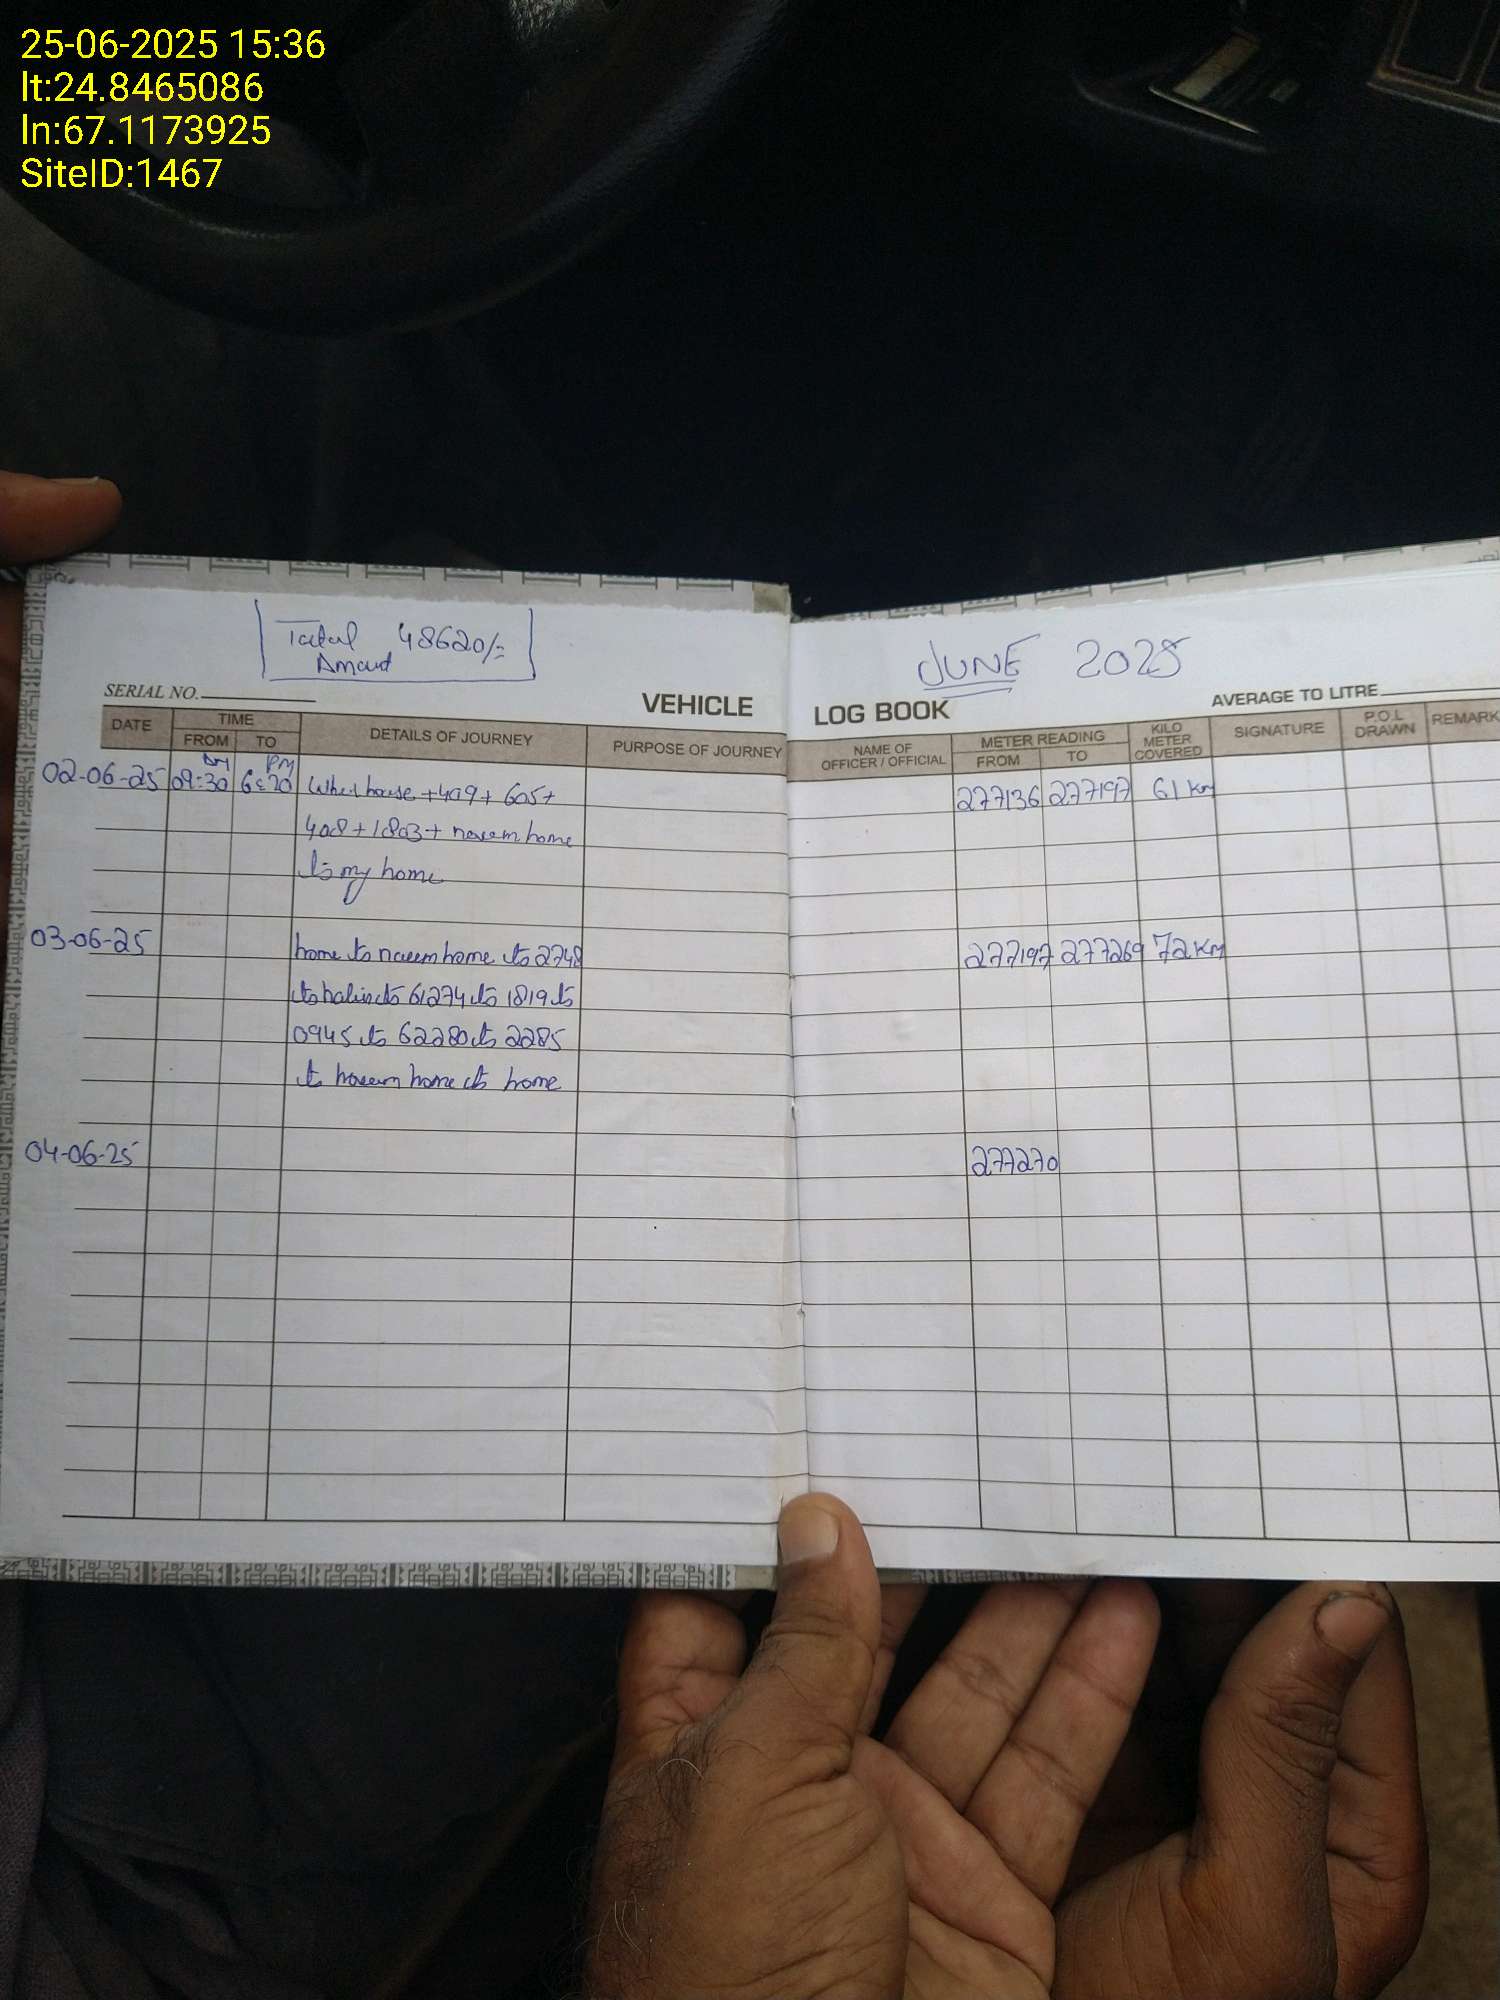 25-06-2025 15:36
lt:24.8465086
ln:67.1173925
SiteID:1467
Total 48620/=
Amount
JUNE 2025
SERIAL NO.
VEHICLE LOG BOOK
AVERAGE TO LITRE
DATE TIME FROM TO DETAILS OF JOURNEY PURPOSE OF JOURNEY NAME OF OFFICER / OFFICIAL METER READING FROM TO KILO METER COVERED SIGNATURE P.O.L DRAWN REMARK
AM PM
02-06-25 09:30 6:20 house +409+ 605+ 277136 277197 61 Km
408+1803+ naeem home
to my home
03-06-25 home to naeem home to 2748 277197 277269 72 Km
to to 61274 to 1819 to
0945 to 62280 to 2285
to naeem home to home
04-06-25 277270